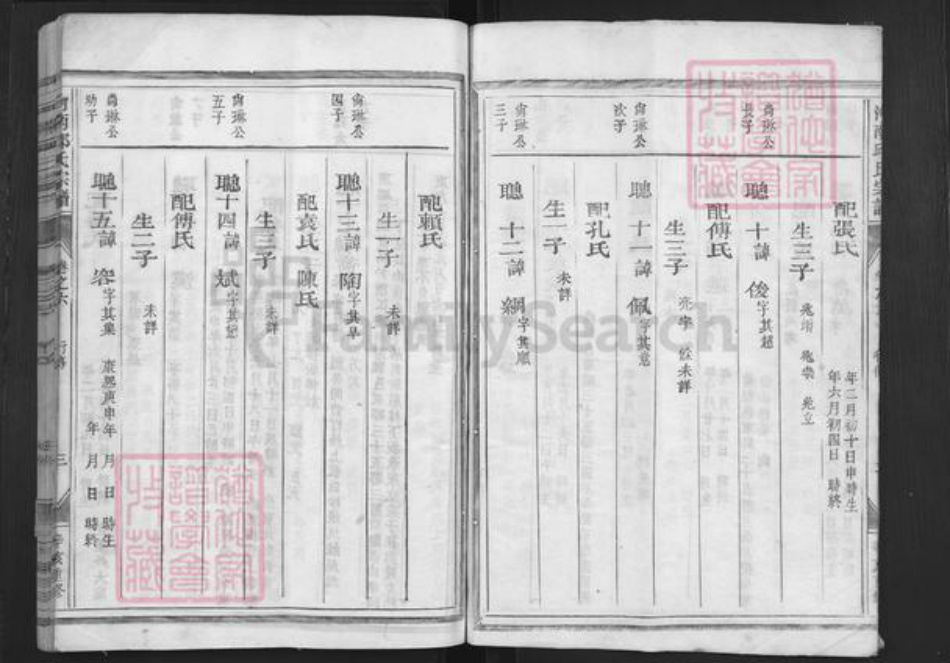 配張氏
年二月初十日申時生
年六月初四日 時終
生三子
尚琳公
長子
聰十諱俊
字其超
配傅氏
生三子
亮宇 餘未詳
尚琳公
次子
聰十一諱佩
字其意
配孔氏
生一子
未詳
尚琳公
三子
聰十二諱綱
字其順
配賴氏
生一子
未詳
尚琳公
四子
聰十三諱陶
字其阜
配袁氏 陳氏
生三子
未詳
尚琳公
五子
聰十四諱斌
配傅氏
生二子
未詳
尚琳公
幼子
聰十五諱容
字其集
康熙庚申年 月 日 時生
年 月 日 時終
卷之六
三
辛亥重修
FamilySearch